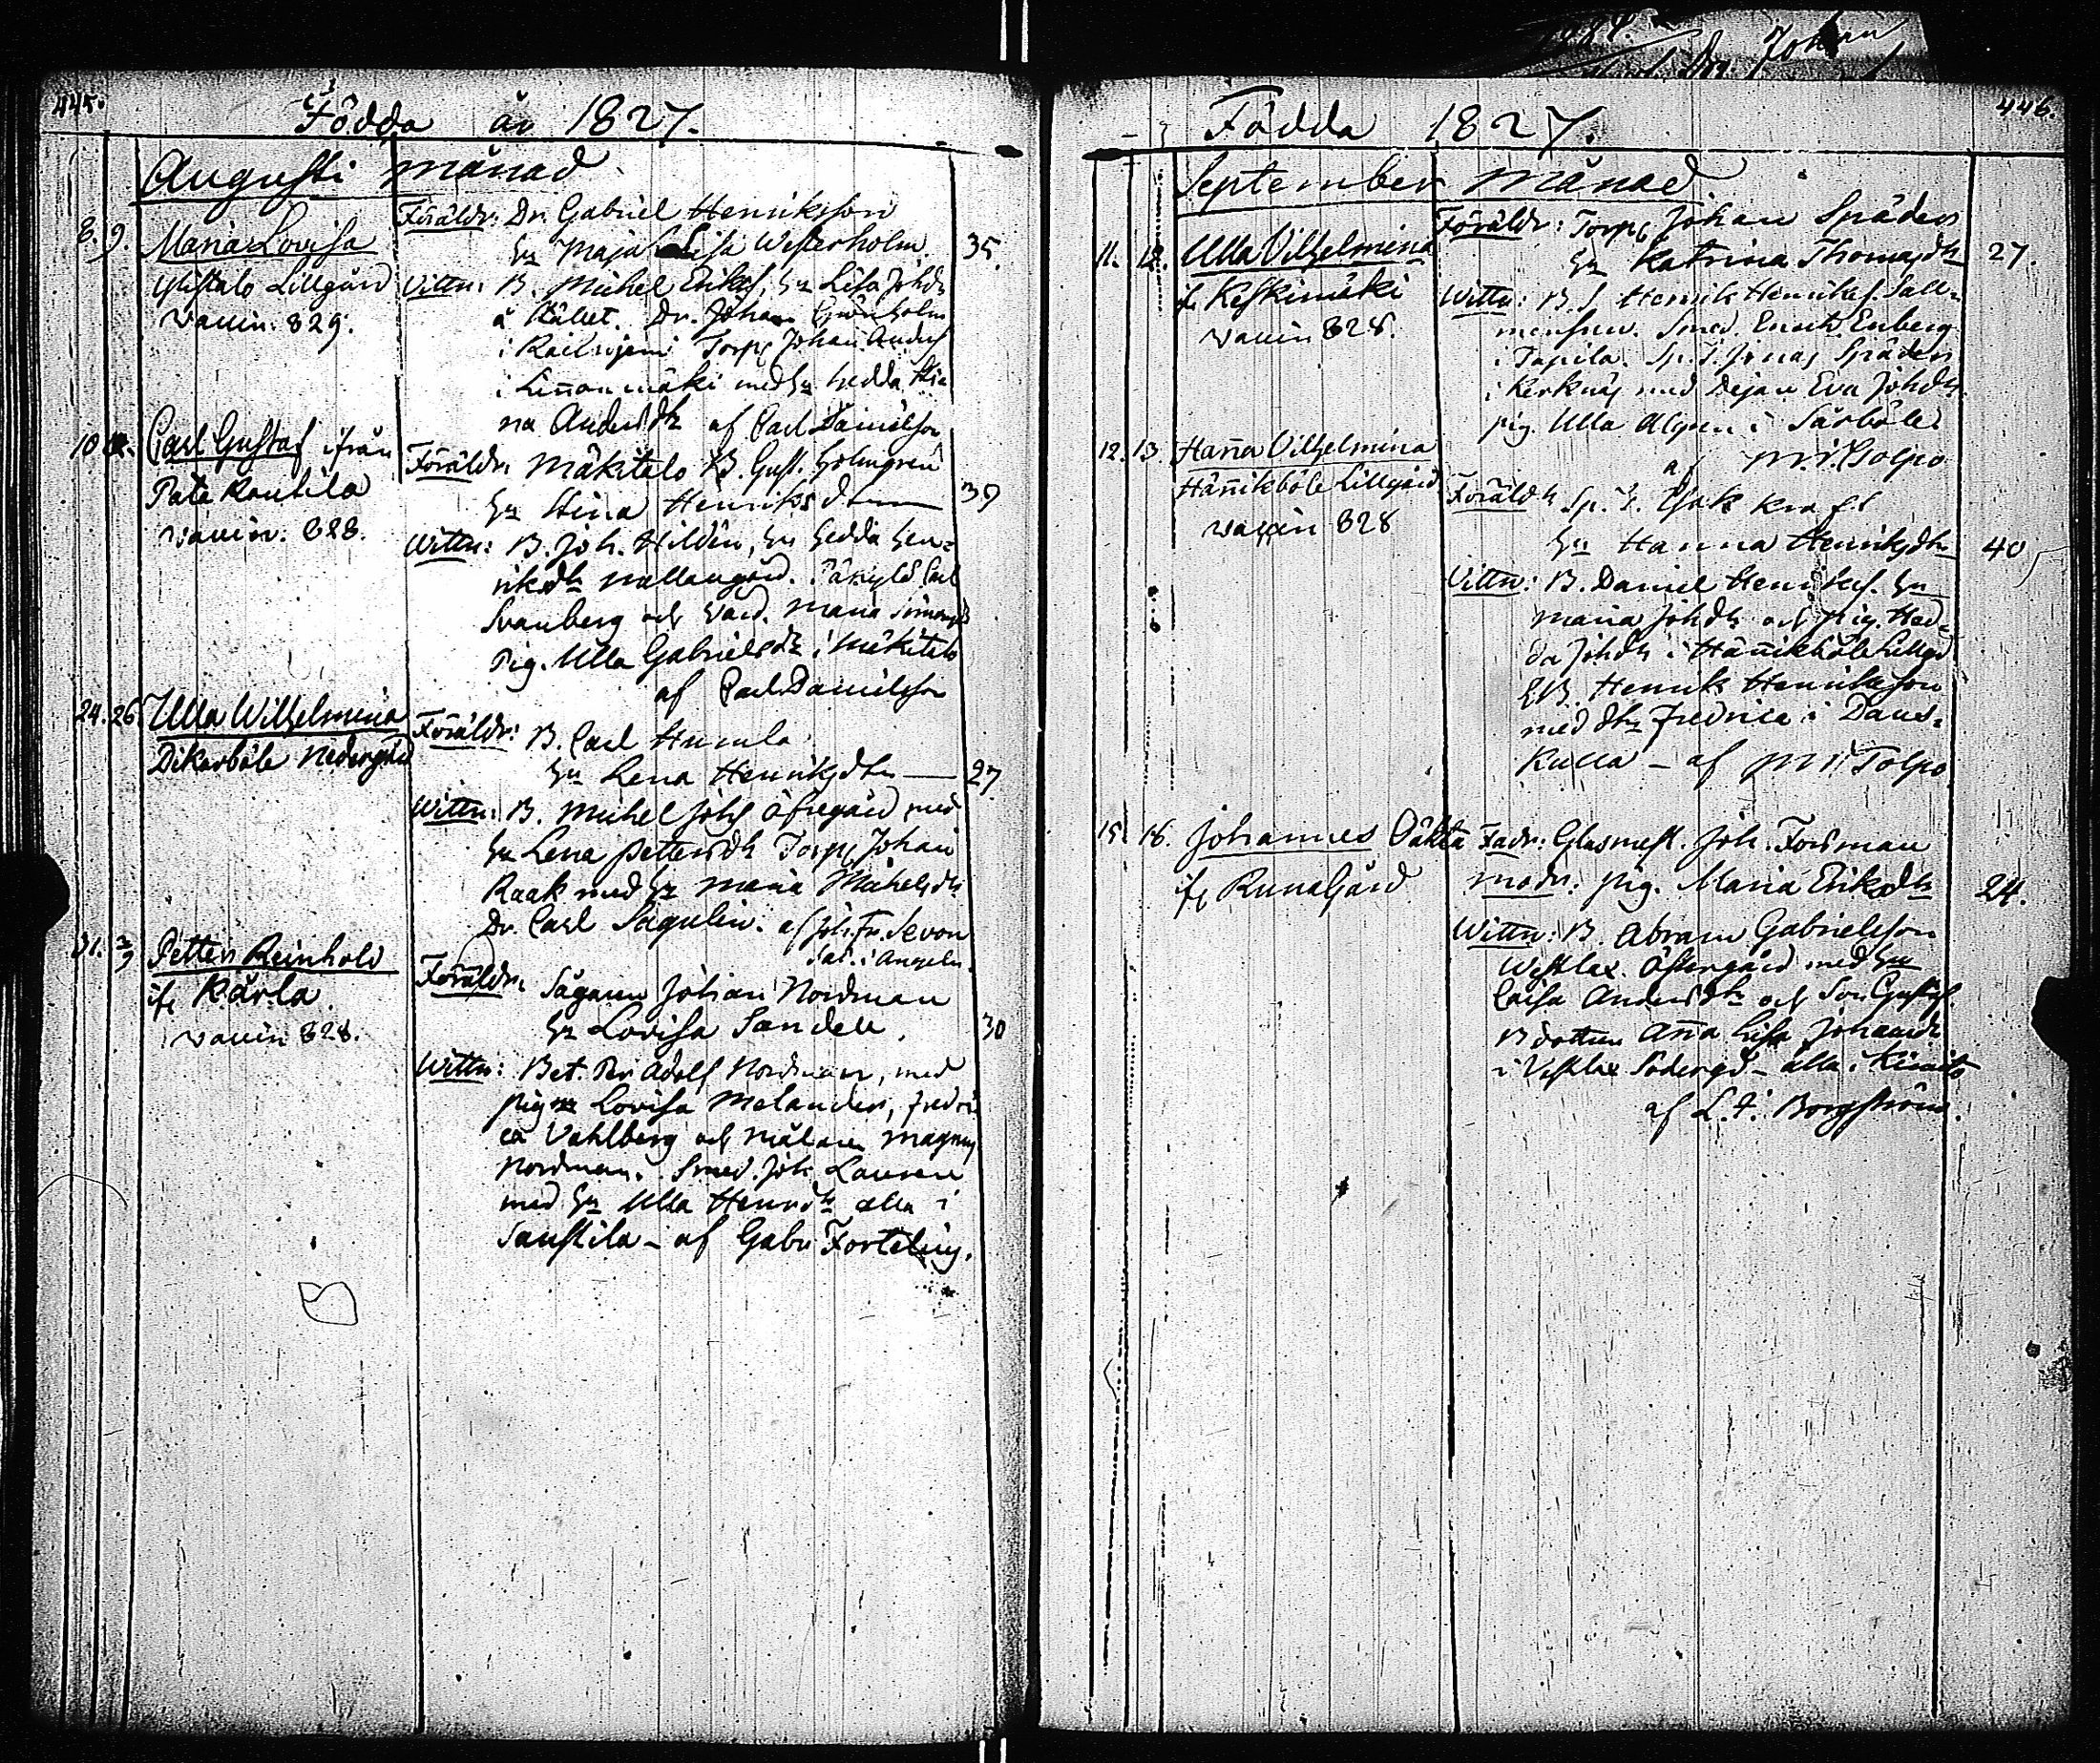 445.
Födda år 1827.
Augusti månad
8. 9. Maria Lovisa
Lillgård
vaccin. 829.
Föräldr: Dr. Gabriel Henriksson
Hu Maja Lisa Westerholm 35.
Vittn: B. Michel Erikss. Hu Lisa Johdr
å stället. Dr. Johan Grönholm
i Torp Johan Anders
i Linnanmäki med Hu Hedda Sti
na Andersdr af Carl Danielsson
10 Carl Gustaf ifrån
Pata Koukila
vaccin. 828.
Föräldr: Mäkitalo B. Gust. Holmgren
Hu Stina Henriksdr 39
Wittn: B. Joh. Hildén, Hu Hedda Hen-
riksdr Mellangård. Carl
Svanberg och Maria Simonsd
Pig. Ulla Gabrielsdr i Mäkitalo
af Carl Danielsson
24. 26. Ulla Wilhelmina
Dikarböle Nedergård
Föräldr: B. Carl Humla
Hu Lena Henriksdtr — 27.
Wittn: B. Michel Johs Öfregård med
Hu Lena Pettersdr Torp Johan
Raak med Hu Maria Michelsdr
Dr. Carl Sagulin. af Joh. Fr. Sevon
Sac. i Angeln.
31. 2/9 Petter Reinhold
if Kärla.
vaccin 828.
Föräldr: Sågaren Johan Nordman
Hu Lovisa Sandell. 30
Wittn: Bet. Per Adolf Nordman, med
pig Lovisa Melander, Fredri
ca Vahlberg och målaren Magnus
Nordman. Smed. Joh Lauren
med Hu Ulla Henrdr alla i
Sauskila – af Gabr Fortelius.
446.
Födda 1827.
September Månad
11. 12. Ulla Vilhelmina
if Keskimäki
vaccin 828.
Föräldr: Torp Johan Späder
Hu Katrina Thomasdtr 27.
Wittn: B. S. Henrik Henrikss. Sall-
Smed. Enberg
i Tapila. Sp. J. Jonas Späder
i Kerknäs med Dejan Eva Johdr
pig. Ulla Algren i Särböle
af M. i. Tolpo
12. 13. Hanna Vilhelmina
Hännikböle Lillgård
vaccin 828
Föräldr Sp. J. Isak Kraft
Hu Hanna Henriksdtr 40
Vittn: B. Daniel Henrikss. Hu
Maria Johdr och pig. Hed-
da Johdr i Hännikböle Lillgd
B. Henrik Henriksson
med dtr Fredrica i Dans-
kulla – af M. i. Tolpo
15. 16. Johannes Oäkta
if Runagård
Fadr: Glasmest. Joh. Forsman
Modr: pig. Maria Eriksdtr 24.
Wittn: B. Abram Gabrielsson
Westlax Östergård med Hu
Caisa Andersdtr och Son Gustaf.
B dottren Anna Lisa Johansdr
i Vestlax Södergd – alla i Kimito
af L. J. Borgström.
Johan